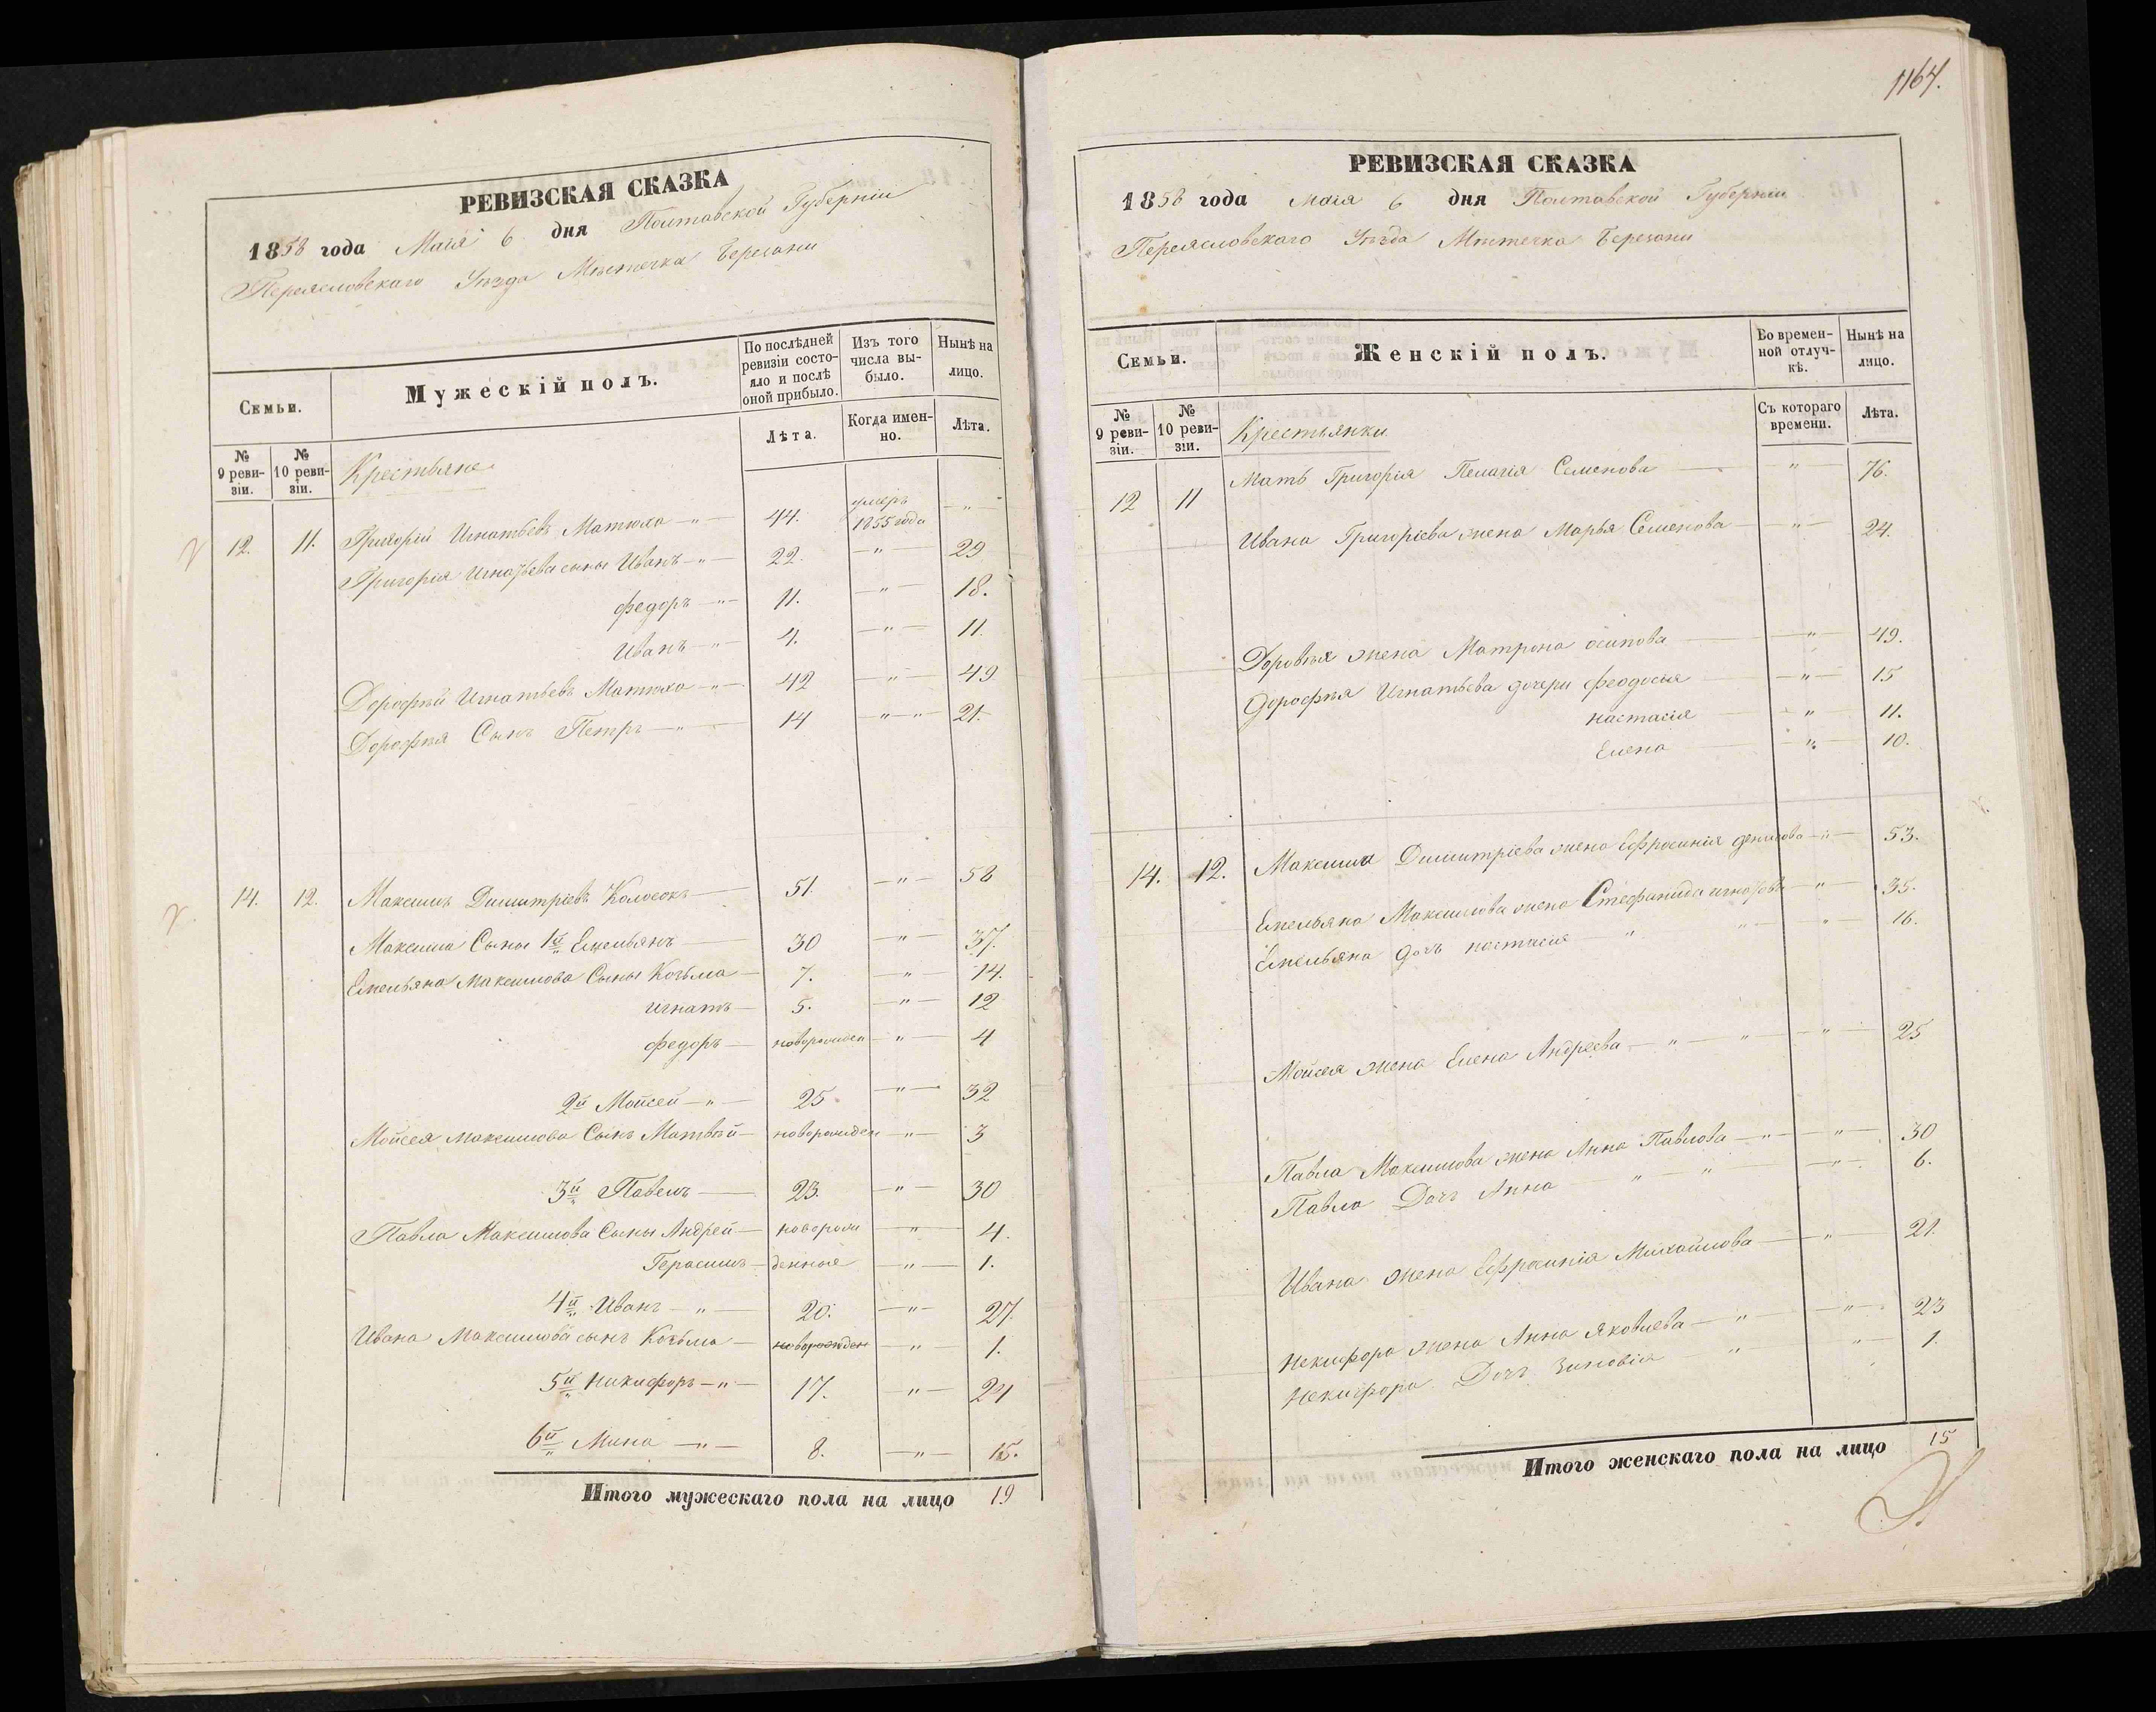 РЕВИЗСКАЯ СКАЗКА
1858 года Маія 6 дня Полтавской Губерніи
Переясловскаго Уезда Мѣстечка Березани
Семьи.
Мужескій полъ.
По послѣдней ревизіи состояло и послѣ оной прибыло.
Изъ того числа выбыло.
Нынѣ на лицо.
№ 9 ревизіи.
№ 10 ревизіи.
Крестьяне
Лѣта.
Когда именно.
Лѣта.
12. 11. Григорій Игнатьевъ Матюха —"— 44. умеръ 1855 года —"—
Григорія Игнатьева сыны Иванъ —"— 22. —"— 29
Федоръ —"— 11. —"— 18.
Иванъ —"— 4. —"— 11.
Дорофѣй Игнатьевъ Матюха —"— 42 —"— 49
Дорофѣя Сынъ Петръ —"— 14 —"—"— 21.
14. 12. Максимъ Димитріевъ Колосокъ — 51. —"— 58
Максима Сыны 1й Емельянъ — 30 —"— 37.
Емельяна Максимова Сыны Козьма — 7. —"— 14.
Игнатъ — 5. —"— 12
Федоръ — новорожден —"— 4
2й Мойсей —"— 25 —"— 32
Мойсея Максимова Сынъ Матвѣй — новорожден —"— 3
3й Павелъ — 23. —"— 30
Павла Максимова Сыны Андрей — поворож —"— 4.
Герасимъ — денные —"— 1.
4й Иванъ —"— 20. —"— 27.
Ивана Максимова сынъ Козьма — новорожден —"— 1.
5й Никифоръ —"— 17. —"— 24
6й Мина —"— 8. —"— 15.
Итого мужескаго пола на лицо 19
1164.
РЕВИЗСКАЯ СКАЗКА
1858 года Маія 6 дня Полтавской Губерніи
Переясловскаго Уезда Мѣстечка Березани
Семьи.
Женскій полъ.
Во временной отлучкѣ.
Нынѣ на лицо.
№ 9 ревизіи.
№ 10 ревизіи.
Крестьянки
Съ котораго времени.
Лѣта.
12 11 Мать Григорія Пелагія Семенова — " — 76.
Ивана Григоріева жена Марья Семенова —"— 24.
Доровѣя жена Матрона осипова —"— 49.
Дорофѣя Игнатьева дочери Феодосія —"— 15
настасія —"— 11.
Елена —"— 10.
14. 12. Максима Димитріева жена Ефросинія денисова —"— 53.
Емельяна Максимова жена Стефанида игнатова —"— 35.
Емельяна дочъ настасия — " " " 16.
Мойсея жена Елена Андреева —"—"— —"— 25
Павла Максимова жена Анна Павлова —"— —"— 30
Павла Дочъ Анна — " — " —"— 6.
Ивана жена Ефросинія Михайлова — " — 21.
Некифора жена Анна Яковлева — " —"— 23
Некифора Дочъ Зиновія — " — " — 1.
Итого женскаго пола на лицо 15